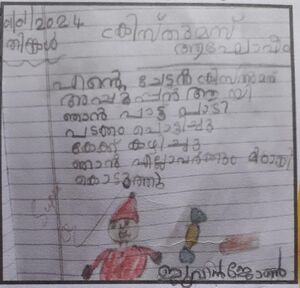 1/1/2024
തിങ്കൾ
ക്രിസ്തുമസ്
ആഘോഷം
എന്റെ ചേട്ടൻ ക്രിസ്തുമസ്
അപ്പൂപ്പൻ ആയി
ഞാൻ പാട്ട് പാടി
പടക്കം പൊട്ടിച്ചു
കേക്ക് കഴിച്ചു
ഞാൻ എല്ലാവർക്കും മിഠായി
കൊടുത്തു
Super